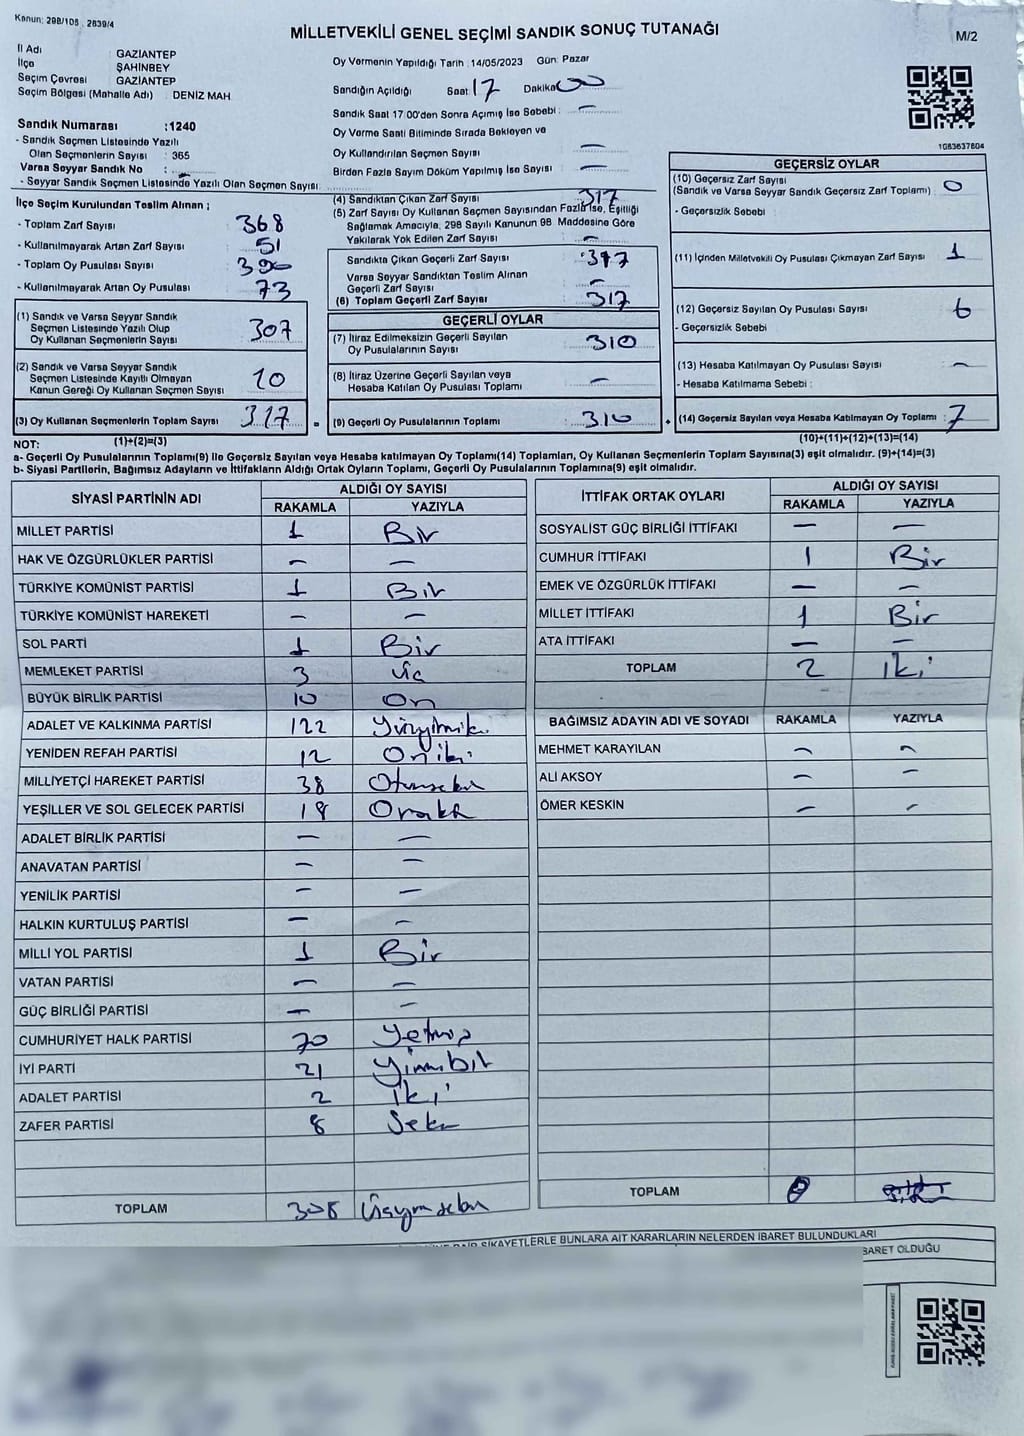 Kanun: 298/105 , 2839/4
MİLLETVEKİLİ GENEL SEÇİMİ SANDIK SONUÇ TUTANAĞI
M/2
İl Adı GAZİANTEP
İlçe ŞAHİNBEY
Seçim Çevresi GAZİANTEP
Seçim Bölgesi (Mahalle Adı) DENİZ MAH
Sandık Numarası :1240
- Sandık Seçmen Listesinde Yazılı
Olan Seçmenlerin Sayısı : 365
Varsa Seyyar Sandık No :
- Seyyar Sandık Seçmen Listesinde Yazılı Olan Seçmen Sayısı:
Oy Vermenin Yapıldığı Tarih : 14/05/2023 Gün: Pazar
Sandığın Açıldığı Saat 17 Dakika 00
Sandık Saat 17.00'den Sonra Açımış İse Sebebi : –
Oy Verme Saati Bitiminde Sırada Bekleyen ve
Oy Kullandırılan Seçmen Sayısı –
Birden Fazla Sayım Döküm Yapılmış İse Sayısı –
1083637604
İlçe Seçim Kurulundan Teslim Alınan ;
- Toplam Zarf Sayısı 368
- Kullanılmayarak Artan Zarf Sayısı 51
- Toplam Oy Pusulası Sayısı 390
- Kullanılmayarak Artan Oy Pusulası 73
(1) Sandık ve Varsa Seyyar Sandık
Seçmen Listesinde Yazılı Olup
Oy Kullanan Seçmenlerin Sayısı 307
(2) Sandık ve Varsa Seyyar Sandık
Seçmen Listesinde Kayıtlı Olmayan
Kanun Gereği Oy Kullanan Seçmen Sayısı 10
(3) Oy Kullanan Seçmenlerin Toplam Sayısı 317
(1)+(2)=(3)
(4) Sandıktan Çıkan Zarf Sayısı : 317
(5) Zarf Sayısı Oy Kullanan Seçmen Sayısından Fazla İse, Eşitliği
Sağlamak Amacıyla, 298 Sayılı Kanunun 98. Maddesine Göre
Yakılarak Yok Edilen Zarf Sayısı –
Sandıkta Çıkan Geçerli Zarf Sayısı : 317
Varsa Seyyar Sandıktan Teslim Alınan
Geçerli Zarf Sayısı –
(6) Toplam Geçerli Zarf Sayısı : 317
GEÇERLİ OYLAR
(7) İtiraz Edilmeksizin Geçerli Sayılan
Oy Pusulalarının Sayısı : 310
(8) İtiraz Üzerine Geçerli Sayılan veya
Hesaba Katılan Oy Pusulası Toplamı : –
= (9) Geçerli Oy Pusulalarının Toplamı : 310
GEÇERSİZ OYLAR
(10) Geçersiz Zarf Sayısı
(Sandık ve Varsa Seyyar Sandık Geçersiz Zarf Toplamı) : 0
- Geçersizlik Sebebi :
(11) İçinden Milletvekili Oy Pusulası Çıkmayan Zarf Sayısı : 1
(12) Geçersiz Sayılan Oy Pusulası Sayısı : 6
- Geçersizlik Sebebi :
(13) Hesaba Katılmayan Oy Pusulası Sayısı : –
- Hesaba Katılmama Sebebi :
+ (14) Geçersiz Sayılan veya Hesaba Katılmayan Oy Toplamı : 7
(10)+(11)+(12)+(13)=(14)
NOT:
a- Geçerli Oy Pusulalarının Toplamı(9) ile Geçersiz Sayılan veya Hesaba katılmayan Oy Toplamı(14) Toplamları, Oy Kullanan Seçmenlerin Toplam Sayısına(3) eşit olmalıdır. (9)+(14)=(3)
b- Siyasi Partilerin, Bağımsız Adayların ve İttifakların Aldığı Ortak Oyların Toplamı, Geçerli Oy Pusulalarının Toplamına(9) eşit olmalıdır.
SİYASİ PARTİNİN ADI ALDIĞI OY SAYISI
RAKAMLA YAZIYLA
MİLLET PARTİSİ 1 Bir
HAK VE ÖZGÜRLÜKLER PARTİSİ – –
TÜRKİYE KOMÜNİST PARTİSİ 1 Bir
TÜRKİYE KOMÜNİST HAREKETİ – –
SOL PARTİ 1 Bir
MEMLEKET PARTİSİ 3 Üç
BÜYÜK BİRLİK PARTİSİ 10 On
ADALET VE KALKINMA PARTİSİ 122 Yüzyirmiki
YENİDEN REFAH PARTİSİ 12 Oniki
MİLLİYETÇİ HAREKET PARTİSİ 38 Otuzsekiz
YEŞİLLER VE SOL GELECEK PARTİSİ 18
ADALET BİRLİK PARTİSİ – –
ANAVATAN PARTİSİ – –
YENİLİK PARTİSİ – –
HALKIN KURTULUŞ PARTİSİ – –
MİLLİ YOL PARTİSİ 1 Bir
VATAN PARTİSİ – –
GÜÇ BİRLİĞİ PARTİSİ – –
CUMHURİYET HALK PARTİSİ 70 Yetmiş
İYİ PARTİ 21 Yirmibir
ADALET PARTİSİ 2 İki
ZAFER PARTİSİ 8 Sekiz
TOPLAM 308 Üçyüzsekiz
İTTİFAK ORTAK OYLARI ALDIĞI OY SAYISI
RAKAMLA YAZIYLA
SOSYALİST GÜÇ BİRLİĞİ İTTİFAKI – –
CUMHUR İTTİFAKI 1 Bir
EMEK VE ÖZGÜRLÜK İTTİFAKI – –
MİLLET İTTİFAKI 1 Bir
ATA İTTİFAKI – –
TOPLAM 2 İki
BAĞIMSIZ ADAYIN ADI VE SOYADI RAKAMLA YAZIYLA
MEHMET KARAYILAN – –
ALİ AKSOY – –
ÖMER KESKİN – –
TOPLAM
ŞİKAYETLERLE BUNLARA AİT KARARLARIN NELERDEN İBARET BULUNDUKLARI
BARET OLDUĞU